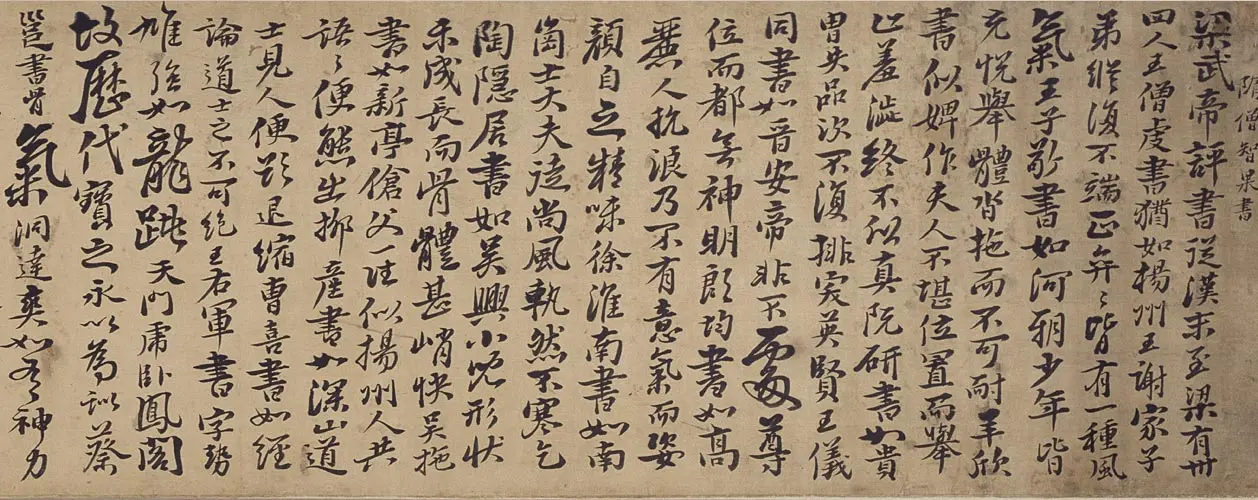 隋僧智果書
梁武帝評書從漢末至梁有卅
四人王僧虔書猶如楊州王謝家子
弟縱復不端正弈〻皆有一種風
氣王子敬書如河朔少年皆
充悅舉體沓拖而不可耐羊欣
書似婢作夫人不堪位置而舉
止羞澁終不似真阮研書如貴
冑失品次不復排突英賢王儀
同書如晉安帝非不處尊
位而都無神明郎均書如高
麗人抗浪乃不有意氣而姿
顏自乏精味徐淮南書如南
崗士大夫徒尚風軌然不寒乞
陶隱居書如吳興小兒形狀
未成長而骨體甚峭快吳施
書如新亭傖父一往似揚州人共
語〻便態出柳產書如深山道
士見人便欲退縮曹喜書如經
論道士之不可絕王右軍書字勢
雄強如龍跳天門虎卧鳳閣
故歷代寶之永以為訓蔡
邕書骨氣洞達爽如有神力